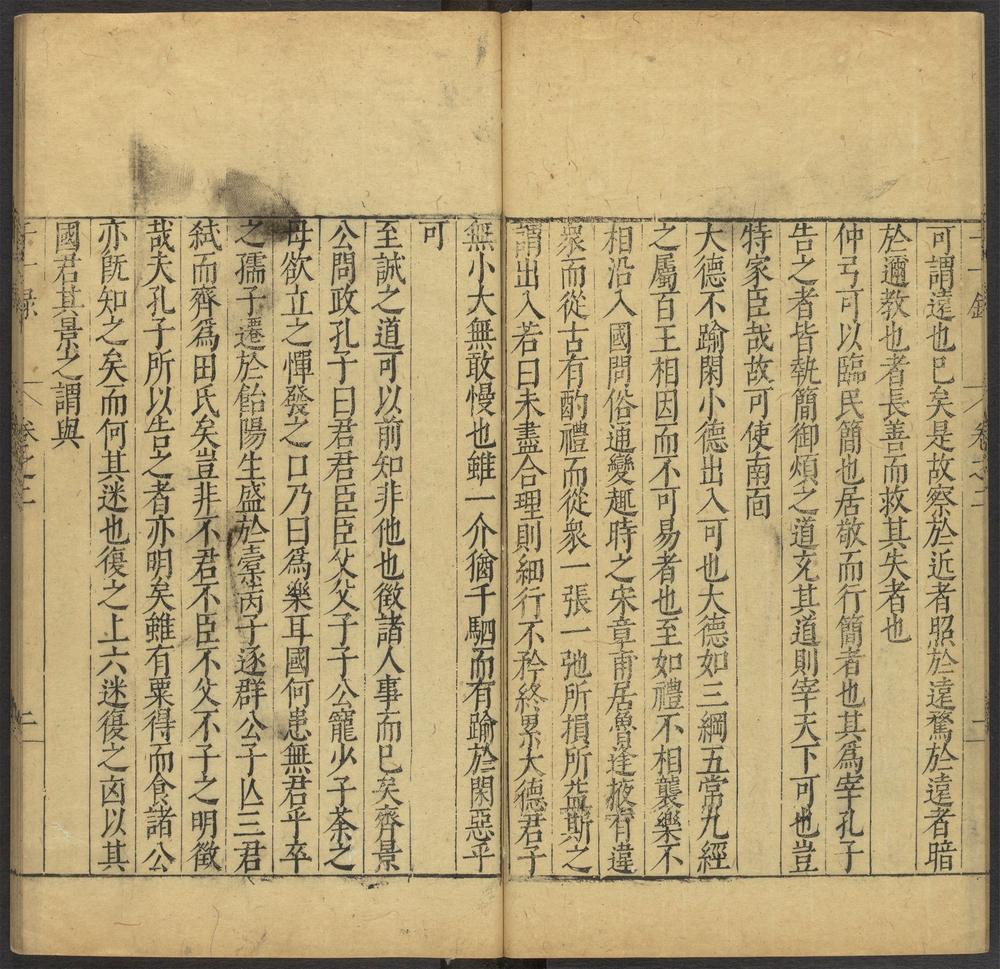 卷之二 二
可謂遠也已矣是故察於近者照於遠騖於遠者暗
於邇教也者長善而救其失者也
仲弓可以臨民簡也居敬而行簡者也其爲宰孔子
告之者皆執簡御煩之道充其道則宰天下可也豈
特家臣哉故可使南面
大德不踰閑小德出入可也大德如三綱五常九經
之屬百王相因而不可易者也至如禮不相襲樂不
相沿入國問俗通變趣時之宋章甫居魯逢掖有違
衆而從古有酌禮而從衆一張一弛所損所益斯之
謂出入若曰未盡合理則細行不矜終累大德君子
無小大無敢慢也雖一介猶千駟而有踰於閑惡乎
可
至誠之道可以前知非他也徵諸人事而已矣齊景
公問政孔子曰君君臣臣父父子子公寵少子荼之
母欲立之憚發之口乃曰爲樂耳國何患無君乎卒
之孺子遷於飴陽生盛於橐芮子逐群公子亾三君
弒而齊爲田氏矣豈非不君不臣不父不子之明徵
哉夫孔子所以告之者亦明矣雖有粟得而食諸公
亦旣知之矣而何其迷也復之上六迷復之凶以其
國君其景之謂與
卷之二 二